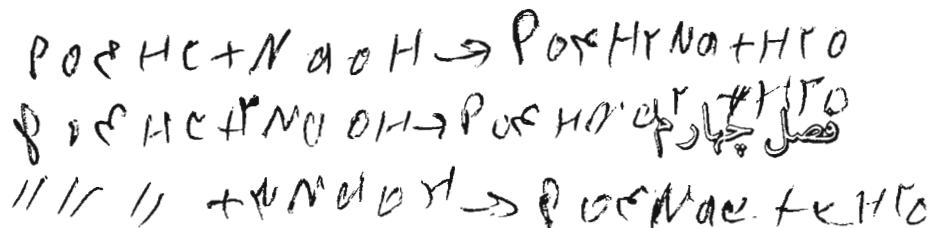 PO۴H۳ + NaOH → PO۴H۲Na + H۲O
PO۴H۳ + ۲NaOH → PO۴HNa۲ + H۲O
فصل چهارم
〃 〃 〃 + ۳NaOH → PO۴Na۳ + ۳H۲O